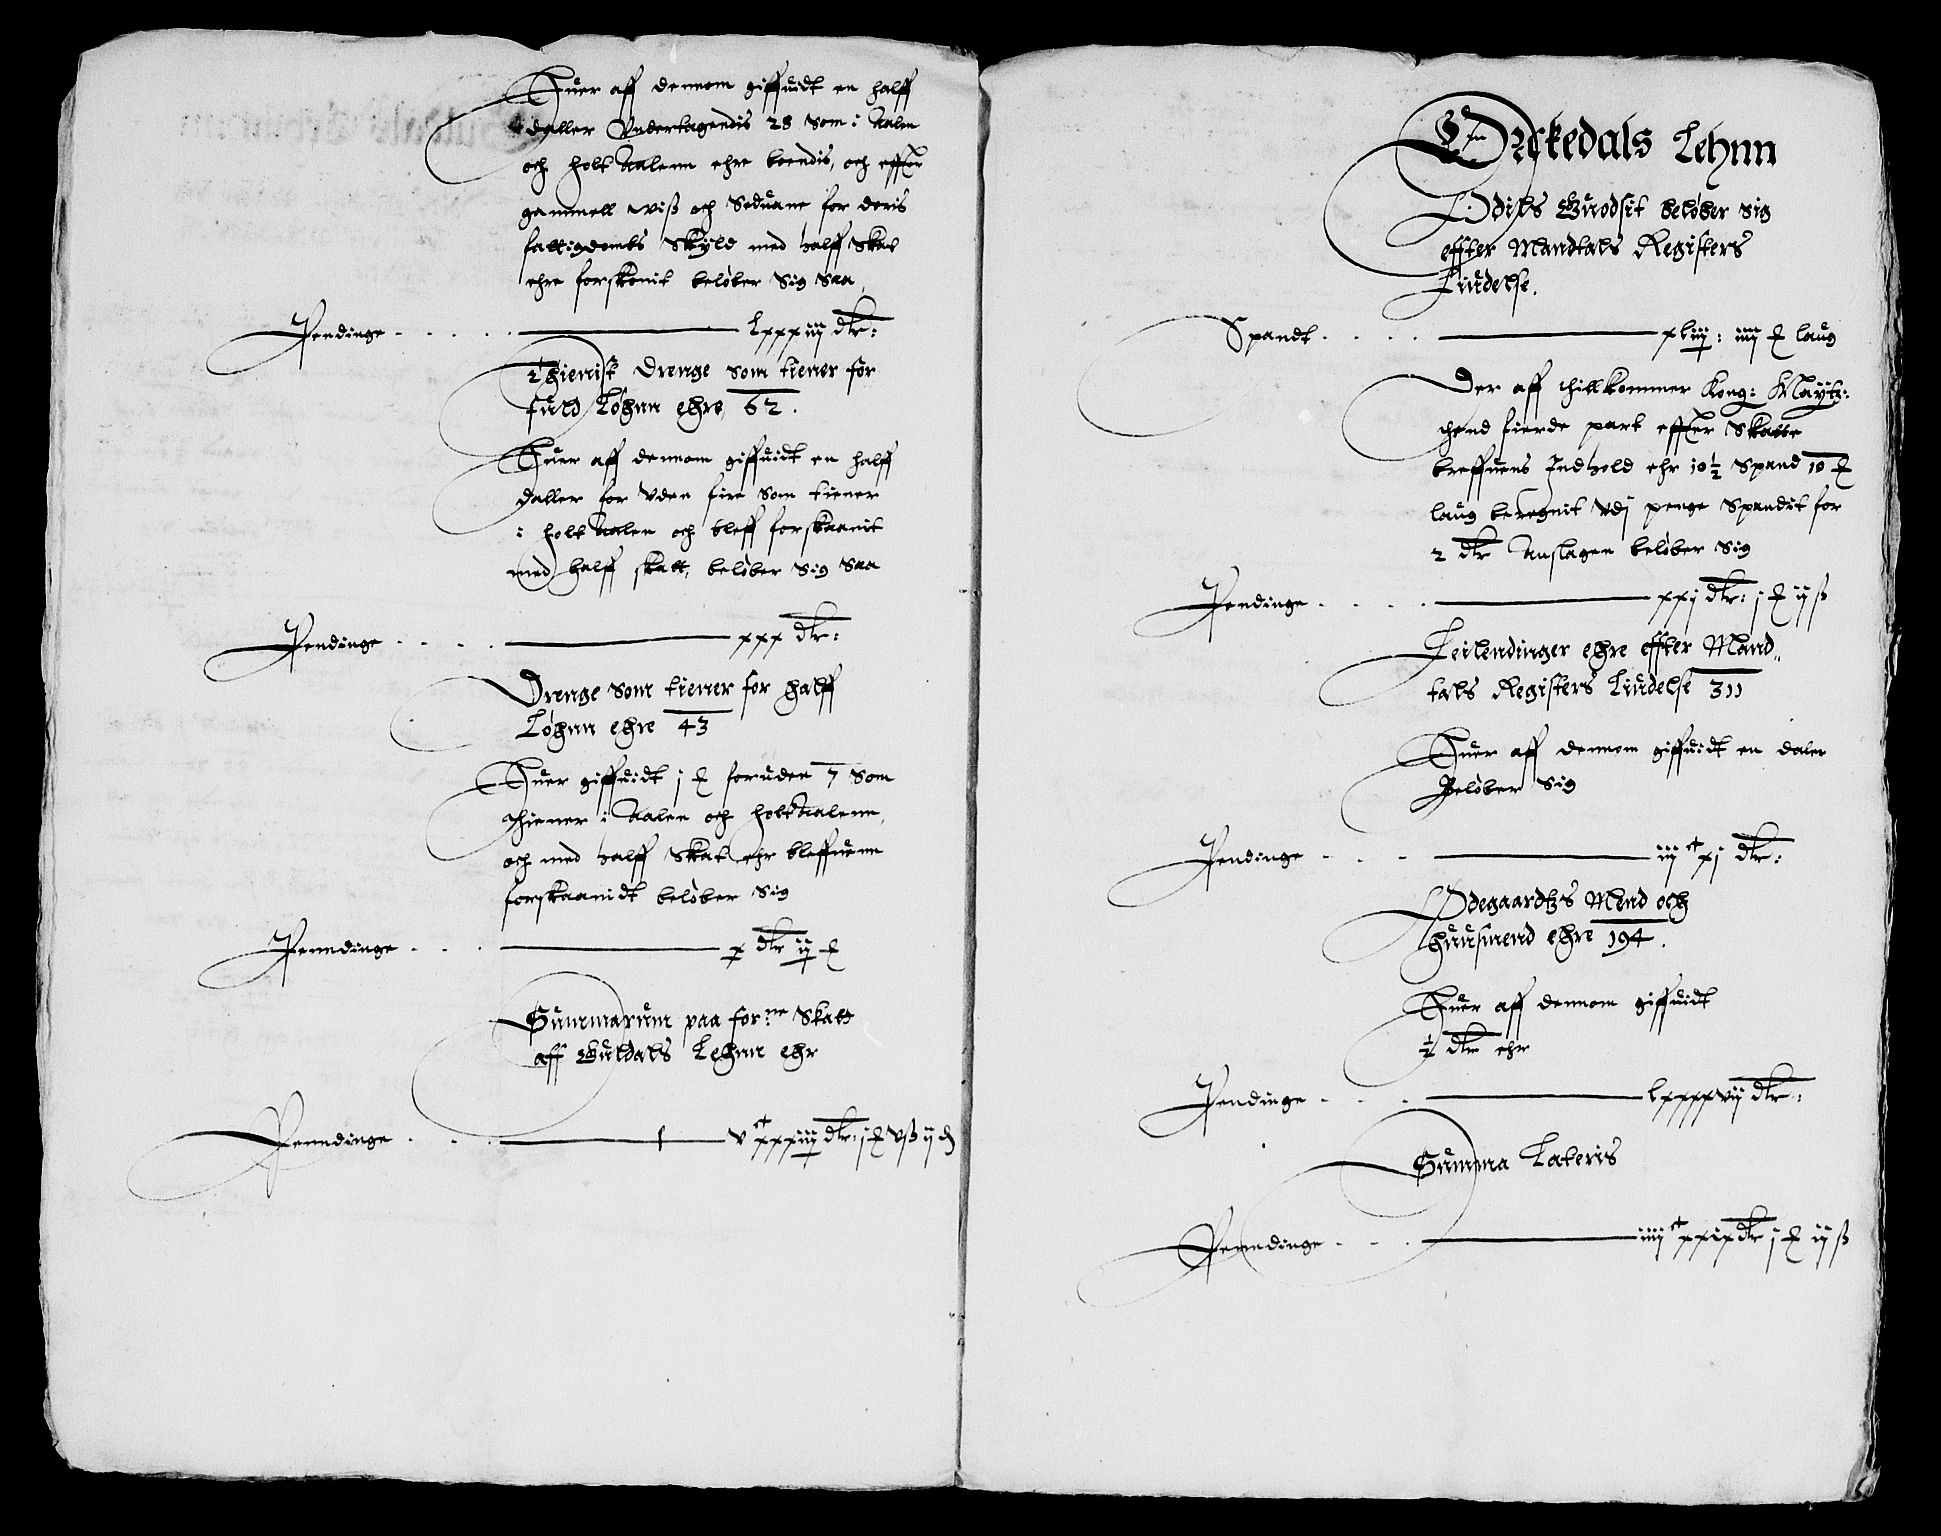 Huer aff dennom giffuidt en halff
daller Vndertagendis 28 som i Aalen
och Holt Aalenn ehre boendis, och effter
gammell wiss och Seduane for deris
fattigdombs Skyld med halff Skat
ehre forskonit beløber sig Saa
Pendinge - - - lxxxiij dlr:
Thienist Drenge som tiener for
fuld Løhnn ehre 62.
Huer aff dennom giffuidt en halff
daller for vden fire som tiener
i Holt Aalen och bleff forskaanit
med halff skatt, beløber sig Saa
Pendinge - - - xxx dlr:
Drenge som tiener for halff
Løhnn ehre 43
Huer giffuidt j ₰ foruden 7 som
thiener i Aalen och Holt Aalenn,
och med halff Skat ehr bleffuenn
forskaanidt beløber sig
Penndinge - - - x dlr ij ₰
Summarum paa for:ne Skatt
aff Guldals Lehnn ehr
Penndinge - - - v ct xxxiiij dlr: j ₰ v ß ij d
Orckedals Lehnn
Odills Guodsit beløber sig
effter Mandtals Registers
Liudelse.
Spandt - - - xliij: iiij ₰ laug
Der aff thillkommer Kong: Maytz:
thend fierde part effter Skatte
breffuens Indhold ehr 10½ Spand 10 ₰
laug beregnit vdj penge Spandit for
2 dlr Anslagen beløber sig
Pendinge - - - xxj dlr: j ₰ ij ß
Leilendinger ehre effter Mand„
tals Registers Liudelse 311
Huer aff dennom giffuidt en daler
Beløber sig
Pendinge - - - iij ct xj dlr:
Ødegaardtzs Mend och
huusmend ehre 194.
Huer aff dennom giffuidt
½ dlr ehr
Pendinge - - - lxxxxvij dlr:
Summa Lateris
Penndinge - - - iiij ct xxix dlr j ₰ ij ß